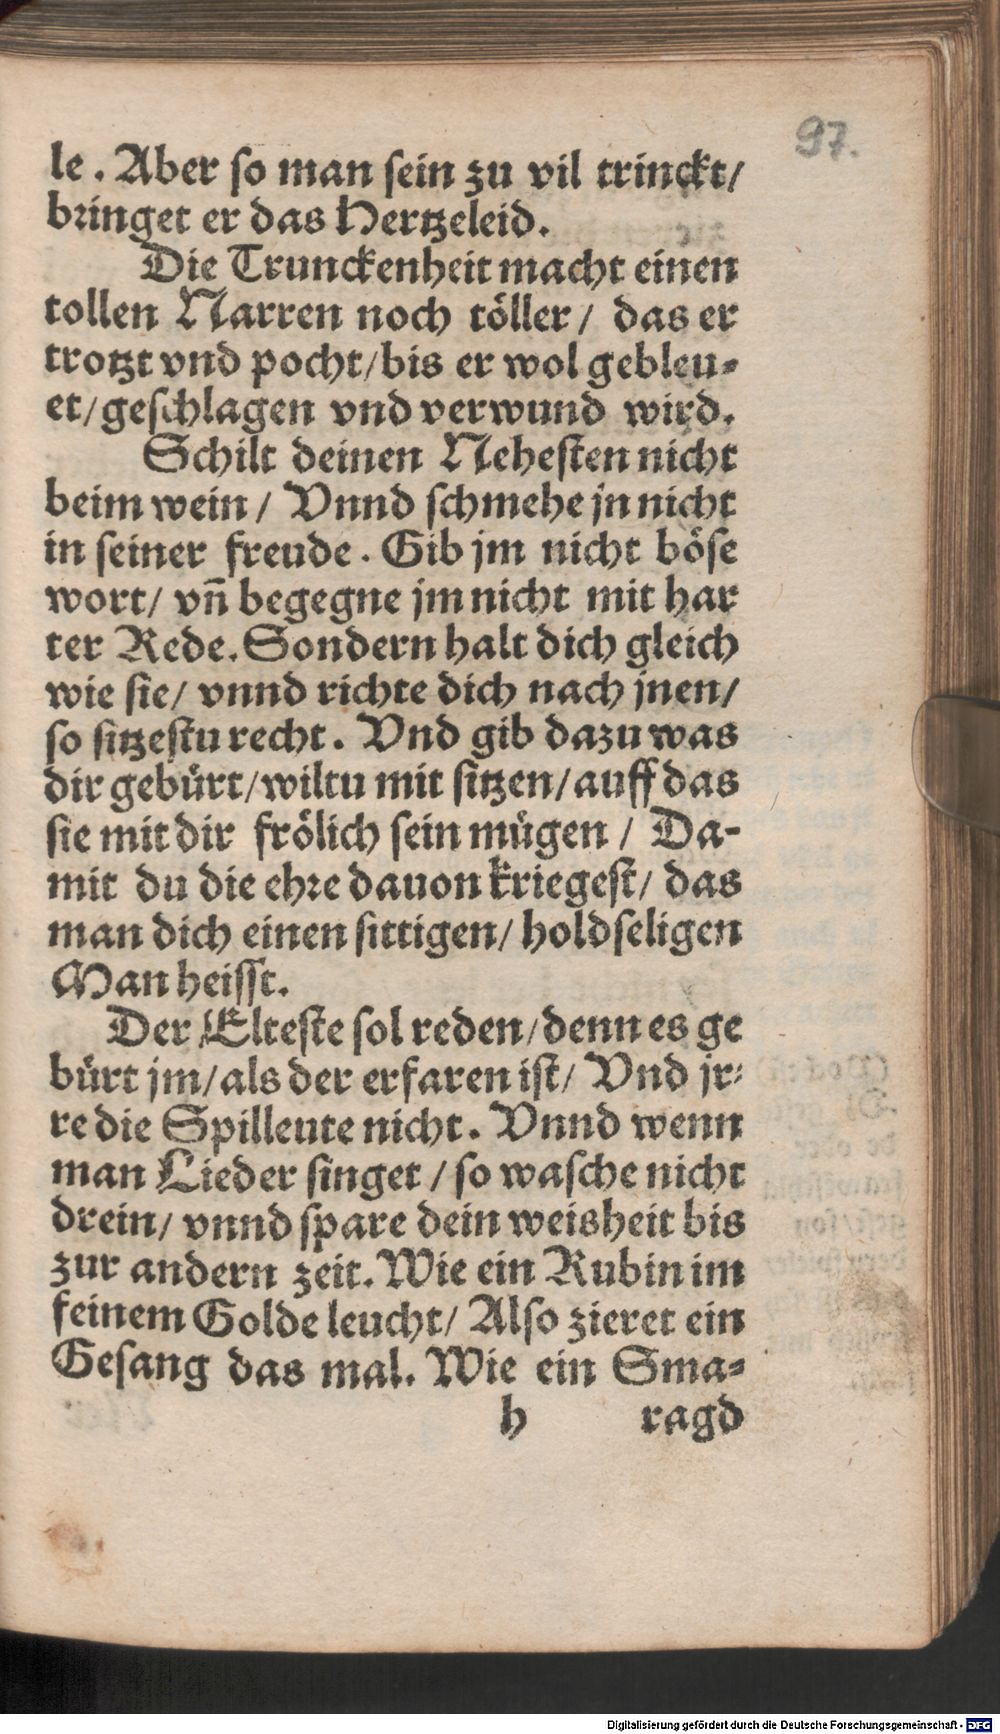 97.
le. Aber so man sein zu vil trinckt/
bringet er das Hertzeleid.
Die Trunckenheit macht einen
tollen Narren noch töller/ das er
trotzt vnd pocht/bis er wol gebleu-
et/geschlagen vnd verwund wird.
Schilt deinen Nehesten nicht
beim wein/ Vnnd schmehe jn nicht
in seiner freude. Gib jm nicht böse
wort/ vñ begegne jm nicht mit har
ter Rede. Sondern halt dich gleich
wie sie/ vnnd richte dich nach jnen/
so sitzestu recht. Vnd gib dazu was
dir gebürt/wiltu mit sitzen/auff das
sie mit dir frölich sein mügen/ Da-
mit du die ehre dauon kriegest/ das
man dich einen sittigen/ holdseligen
Man heisst.
Der Elteste sol reden/denn es ge
bürt jm/als der erfaren ist/ Vnd jr-
re die Spilleute nicht. Vnnd wenn
man Lieder singet/ so wasche nicht
drein/ vnnd spare dein weisheit bis
zur andern zeit. Wie ein Rubin im
feinem Golde leucht/ Also zieret ein
Gesang das mal. Wie ein Sma-
h ragd
Digitalisierung gefördert durch die Deutsche Forschungsgemeinschaft - DFG